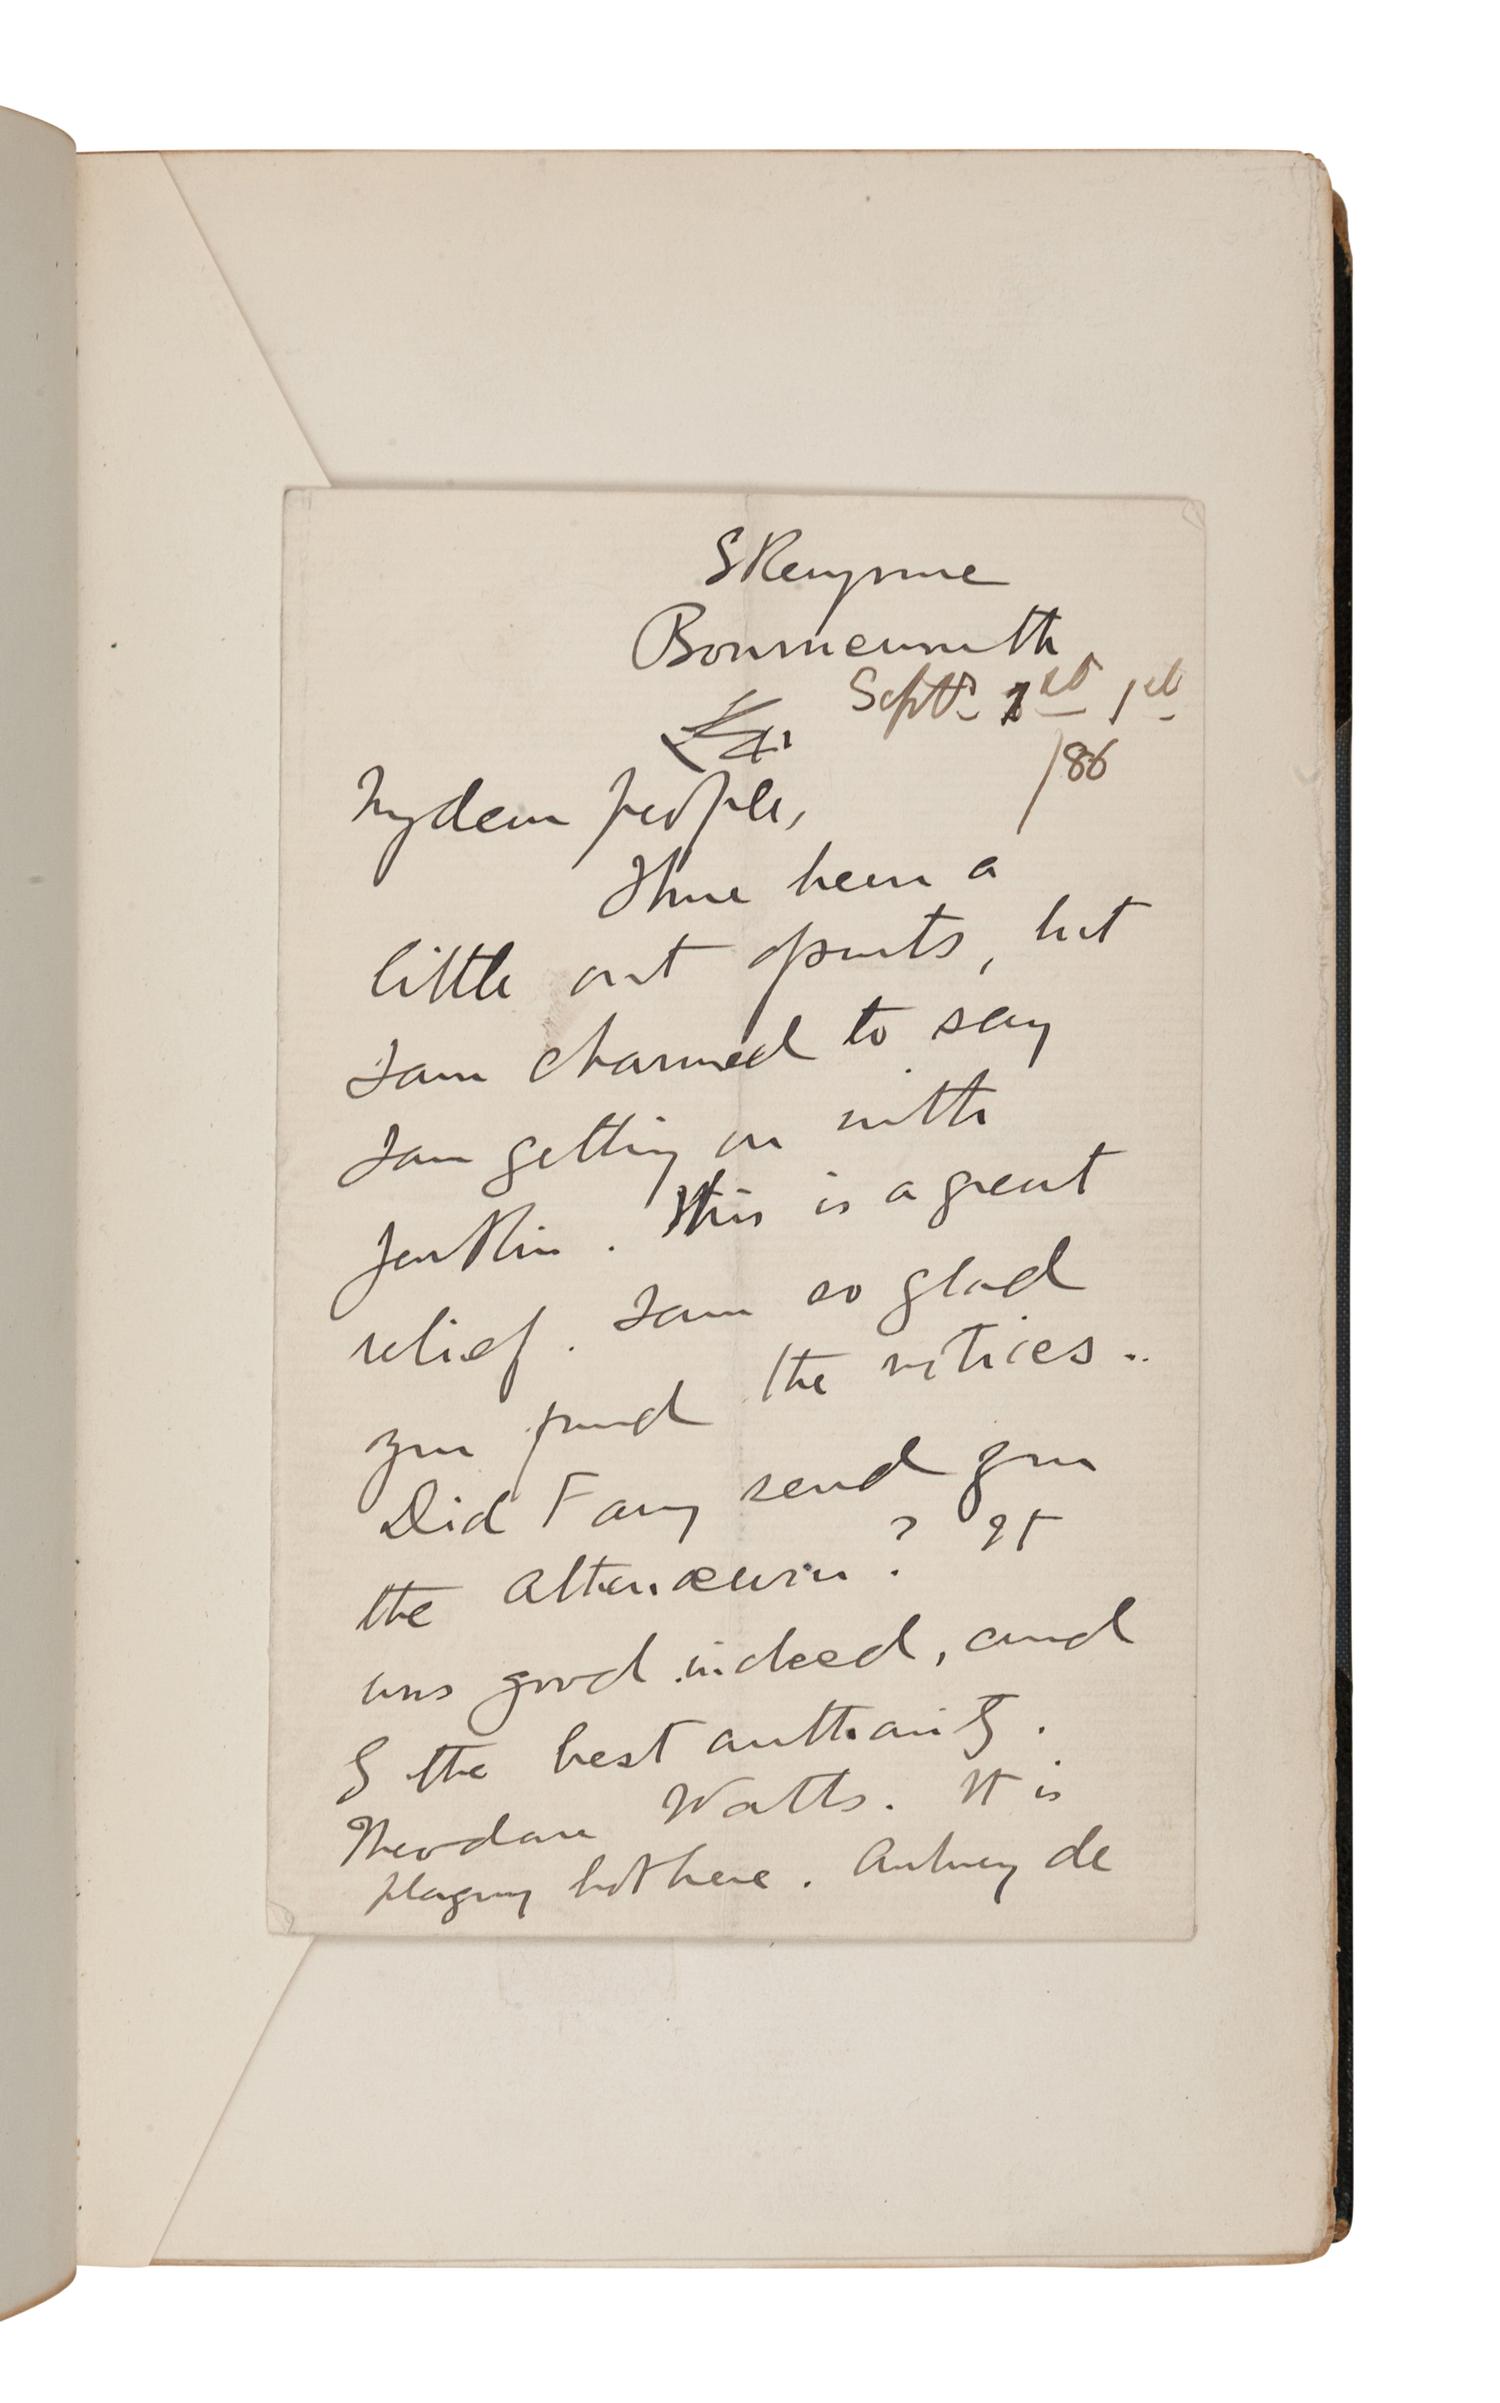 Skerryvore
Bournemouth
Septr. 1st 1st
/86
My dear people,
I have been a
little out of sorts, but
I am charmed to say
I am getting on with
Jenkin. This is a great
relief. I am so glad
you found the notices..
Did Fanny send you
the Athenaeum? It
was good indeed, and
by the best authority.
Theodore Watts. It is
plaguy hot here. Aubrey de